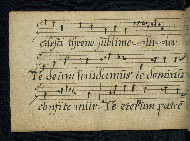 celesti throno sublime
Te deum laudamus te dominū
confitemur Te eternum patrē